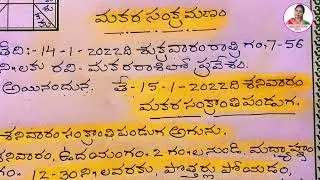 మకర సంక్రమణం
తేది:- 14-1-2022ది శుక్రవారం రాత్రి గం: 7-56
ని॥లకు రవి- మకరరాశిలో ప్రవేశం.
అయినందున. తే- 15-1-2022ది శనివారం
మకర సంక్రాంతి పండుగ.
శనివారం సంక్రాంతి పండుగ అగును.
శనివారం, ఉదయంగం. 2 గం॥లనుండి, మధ్యాహ్నం
గం. 12-30ని॥లవరకు, పొత్తర్లు పోయడం,